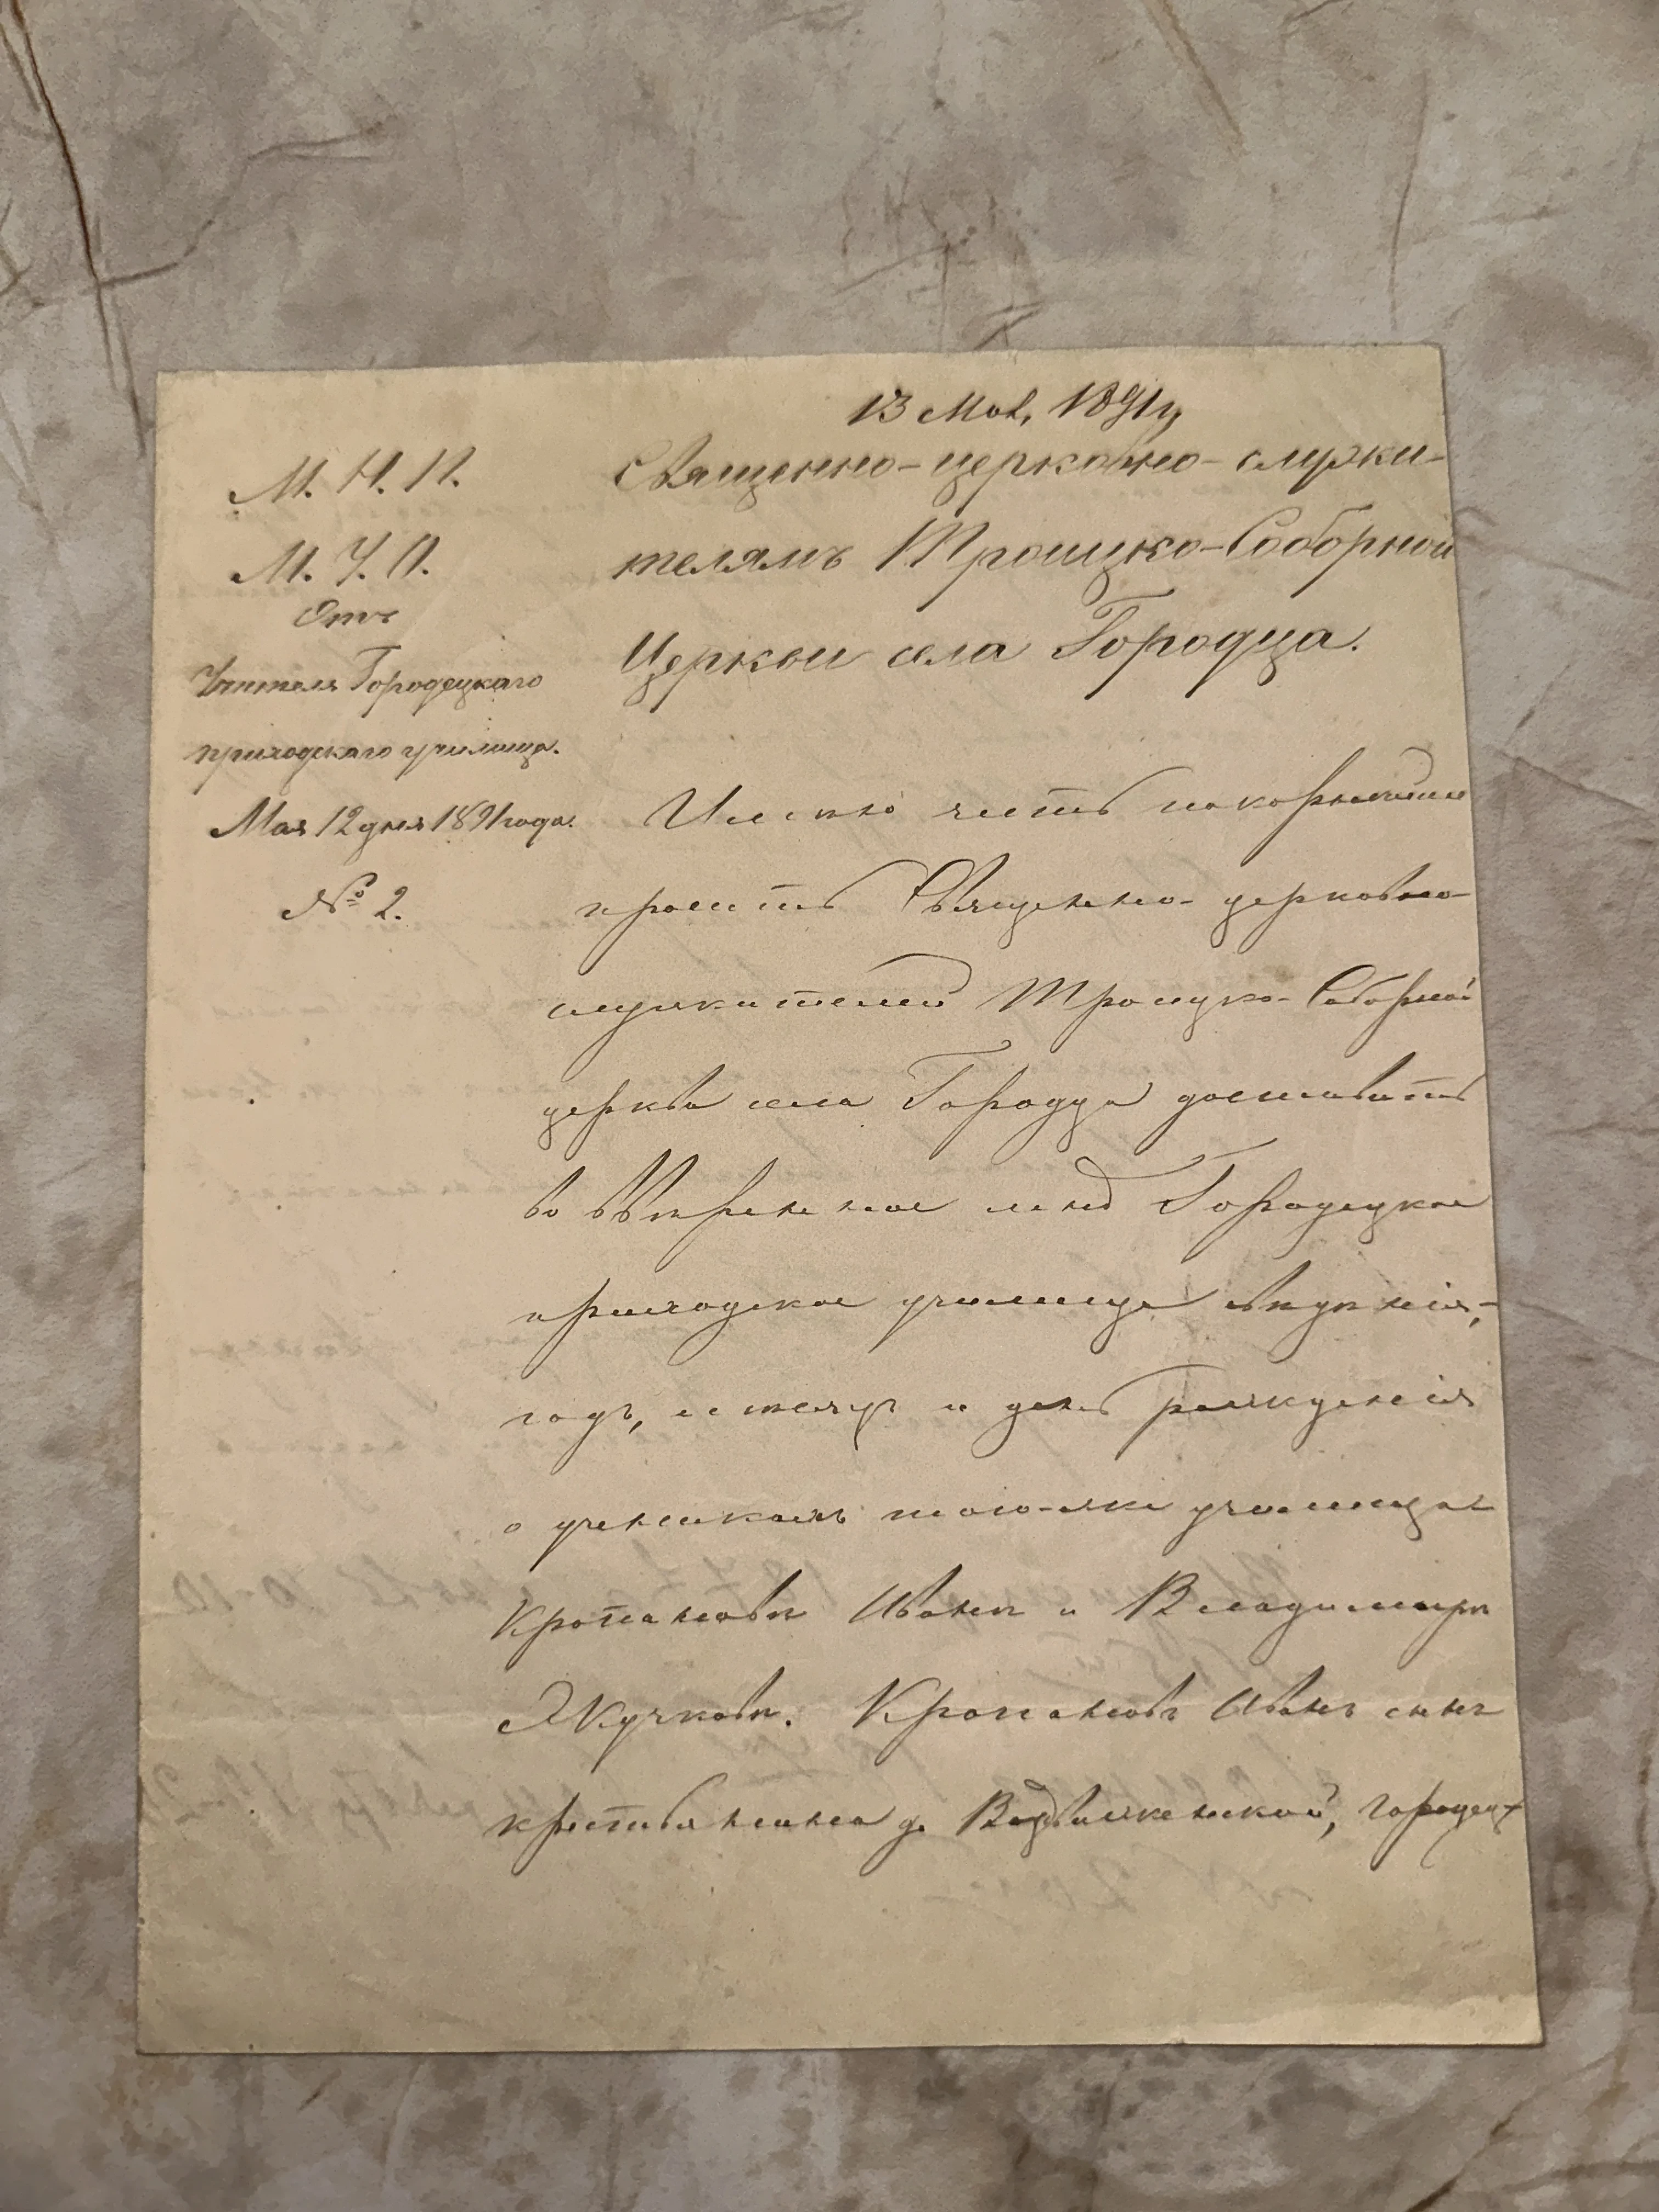 13 Мая, 1891 г,
М. Н. П.
М. У. О.
Отъ
Учителя Городецкаго
приходскаго училища.
Мая 12 дня 1891 года.
№ 2.
Священно-церковно-служи-
телямъ Троицко-Соборной
Церкви села Городца.
Имѣю честь покорнѣйше
просить Священно-церковно-
служителей Троицко-Соборной
церкви села Городца доставить
во ввѣренное мнѣ Городецкое
приходское училище свѣдѣнія,-
годъ, мѣсяцъ и день рожденія
о ученикахъ того-же училища
Кропановѣ Иванѣ и Владимирѣ
Жучковѣ. Кропановъ Иванъ сынъ
крестьянина д. Воздвиженской, Городец-